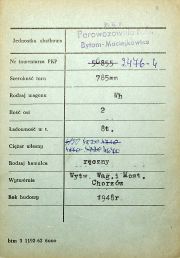 P.K.P.
Jednostka służbowa Parowozownia
Bytom-Maciejkowice
Nr inwentarza PKP 2476-4
Szerokość toru 785mm
Rodzaj wagonu Wh
Ilość osi 2
Ładowność w t. 8t.
Ciężar własny
Rodzaj hamulca ręczny
Wytwórnia Wytw. Wag. i Most.
Chorzów
Rok budowy 1948r